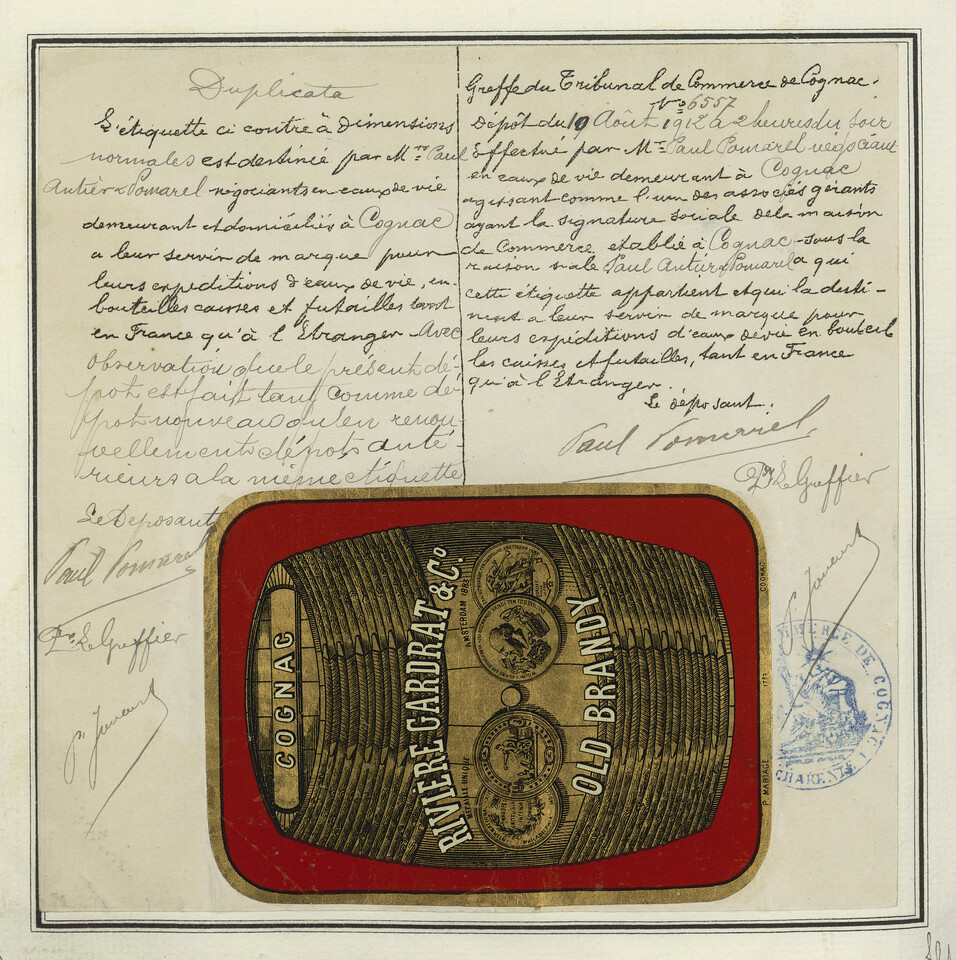 Duplicata
L'étiquette ci contre à dimensions
normales est destinée par Mrs Paul
Antier & Pomarel négociants en eaux de vie
demeurant et domiciliés à Cognac
a leur servir de marque pour
leurs expéditions d'eaux de vie, en
bouteilles caisses et futailles tant
en France qu'à l'Etranger - Avec
observation que le présent dé-
pôt est fait tant comme dé-
pôt nouveau qu'en renou-
vellement dépôts anté-
rieurs à la même étiquette
Le Déposant
Paul Pomarel
Pr. Le Greffier
Greffe du Tribunal de Commerce de Cognac.
No 6557
Dépôt du 19 Août 1912 a 2 heures du soir
Effectué par Mr Paul Pomarel négociant
en eaux de vie demeurant à Cognac
agissant comme l'un des associés gérants
ayant la signature sociale de la maison
de Commerce etablie à Cognac - sous la
raison siale Paul Antier & Pomarel a qui
cette étiquette appartient et qui la desti-
nent a leur servir de marque pour
leurs expéditions d'eaux de vie en bouteil
les caisses et futailles, tant en France
qu'à l'Etranger.
Le déposant.
Paul Pomarel
Pr Le Greffier
COGNAC
RIVIÈRE GARDRAT & Co.
MÉDAILLE UNIQUE
AMSTERDAM 1883
OLD BRANDY
P. MARIAGE
COGNAC
COMMERCE DE COGNAC
CHARENTE